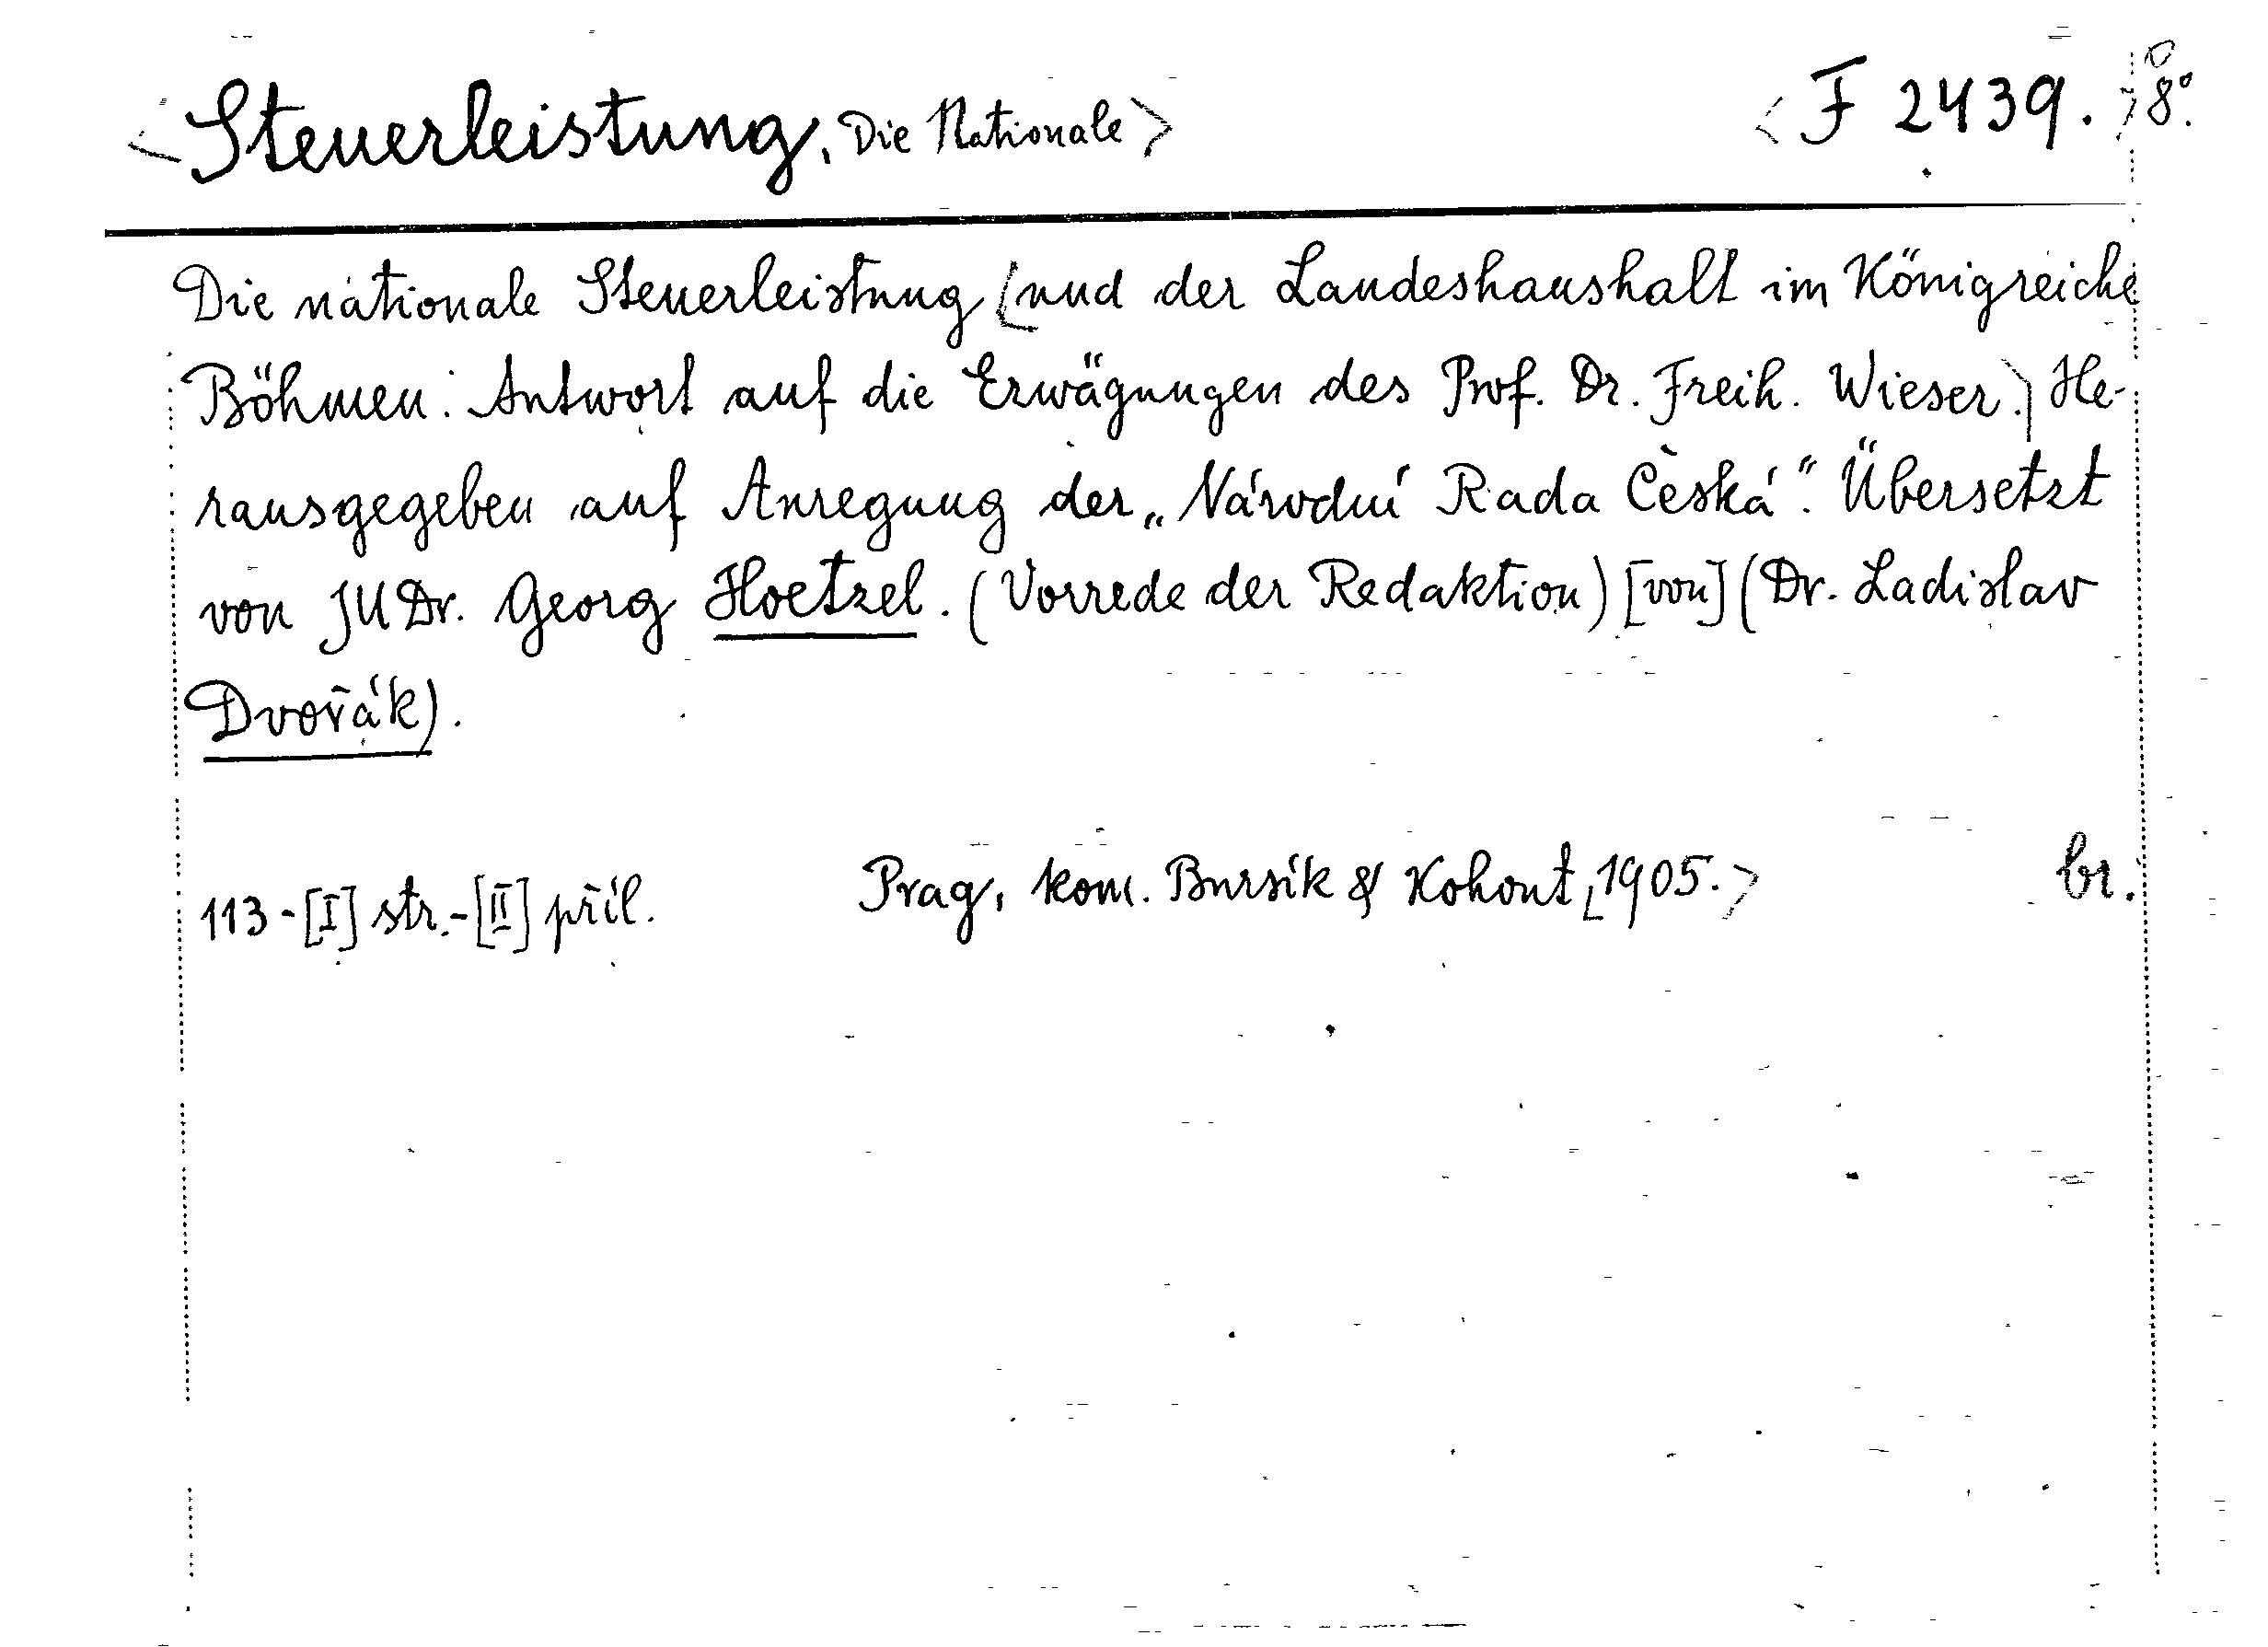 <Steuerleistung, Die Nationale> <F 2439.> 8°.
Die nationale Steuerleistung [und der Landeshaushalt im Königreiche
Böhmen. Antwort auf die Erwägungen des Prof. Dr. Freih. Wieser.] He-
rausgegeben auf Anregung der „Národní Rada Česká“. Übersetzt
von JUDr. Georg Hoetzel. (Vorrede der Redaktion) [von] (Dr. Ladislav
Dvořák).
113-[I] str.-[II] příl. Prag, kom. Bursík & Kohout, 1905.> br.